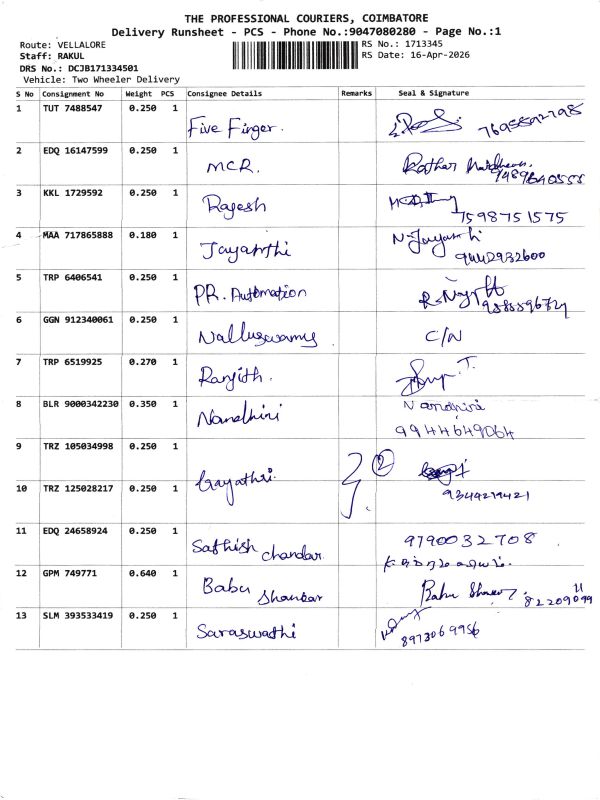 THE PROFESSIONAL COURIERS, COIMBATORE
Delivery Runsheet - PCS - Phone No.:9047080280 - Page No.:1
Route: VELLALORE
RS No.: 1713345
Staff: RAKUL
RS Date: 16-Apr-2026
DRS No.: DCJB171334501
Vehicle: Two Wheeler Delivery
S No Consignment No Weight PCS Consignee Details Remarks Seal & Signature
1 TUT 7488547 0.250 1 Five Finger.
2 EDQ 16147599 0.250 1 MCR.
3 KKL 1729592 0.250 1 Rajesh
7598751575
4 MAA 717865888 0.180 1 Jayanthi N. Jayanthi
9442932600
5 TRP 6406541 0.250 1 PR. Automation
6 GGN 912340061 0.250 1 Nalluswamy C/N
7 TRP 6519925 0.270 1 Ranjith.
8 BLR 9000342230 0.350 1 Nandhini Nandhini
9944649064
9 TRZ 105034998 0.250 1 Gayathri. 2
10 TRZ 125028217 0.250 1 9344219421
11 EDQ 24658924 0.250 1 Sathish chandar. 9790032708
12 GPM 749771 0.640 1 Babu Shankar Babu
13 SLM 393533419 0.250 1 Saraswathi
8973069956